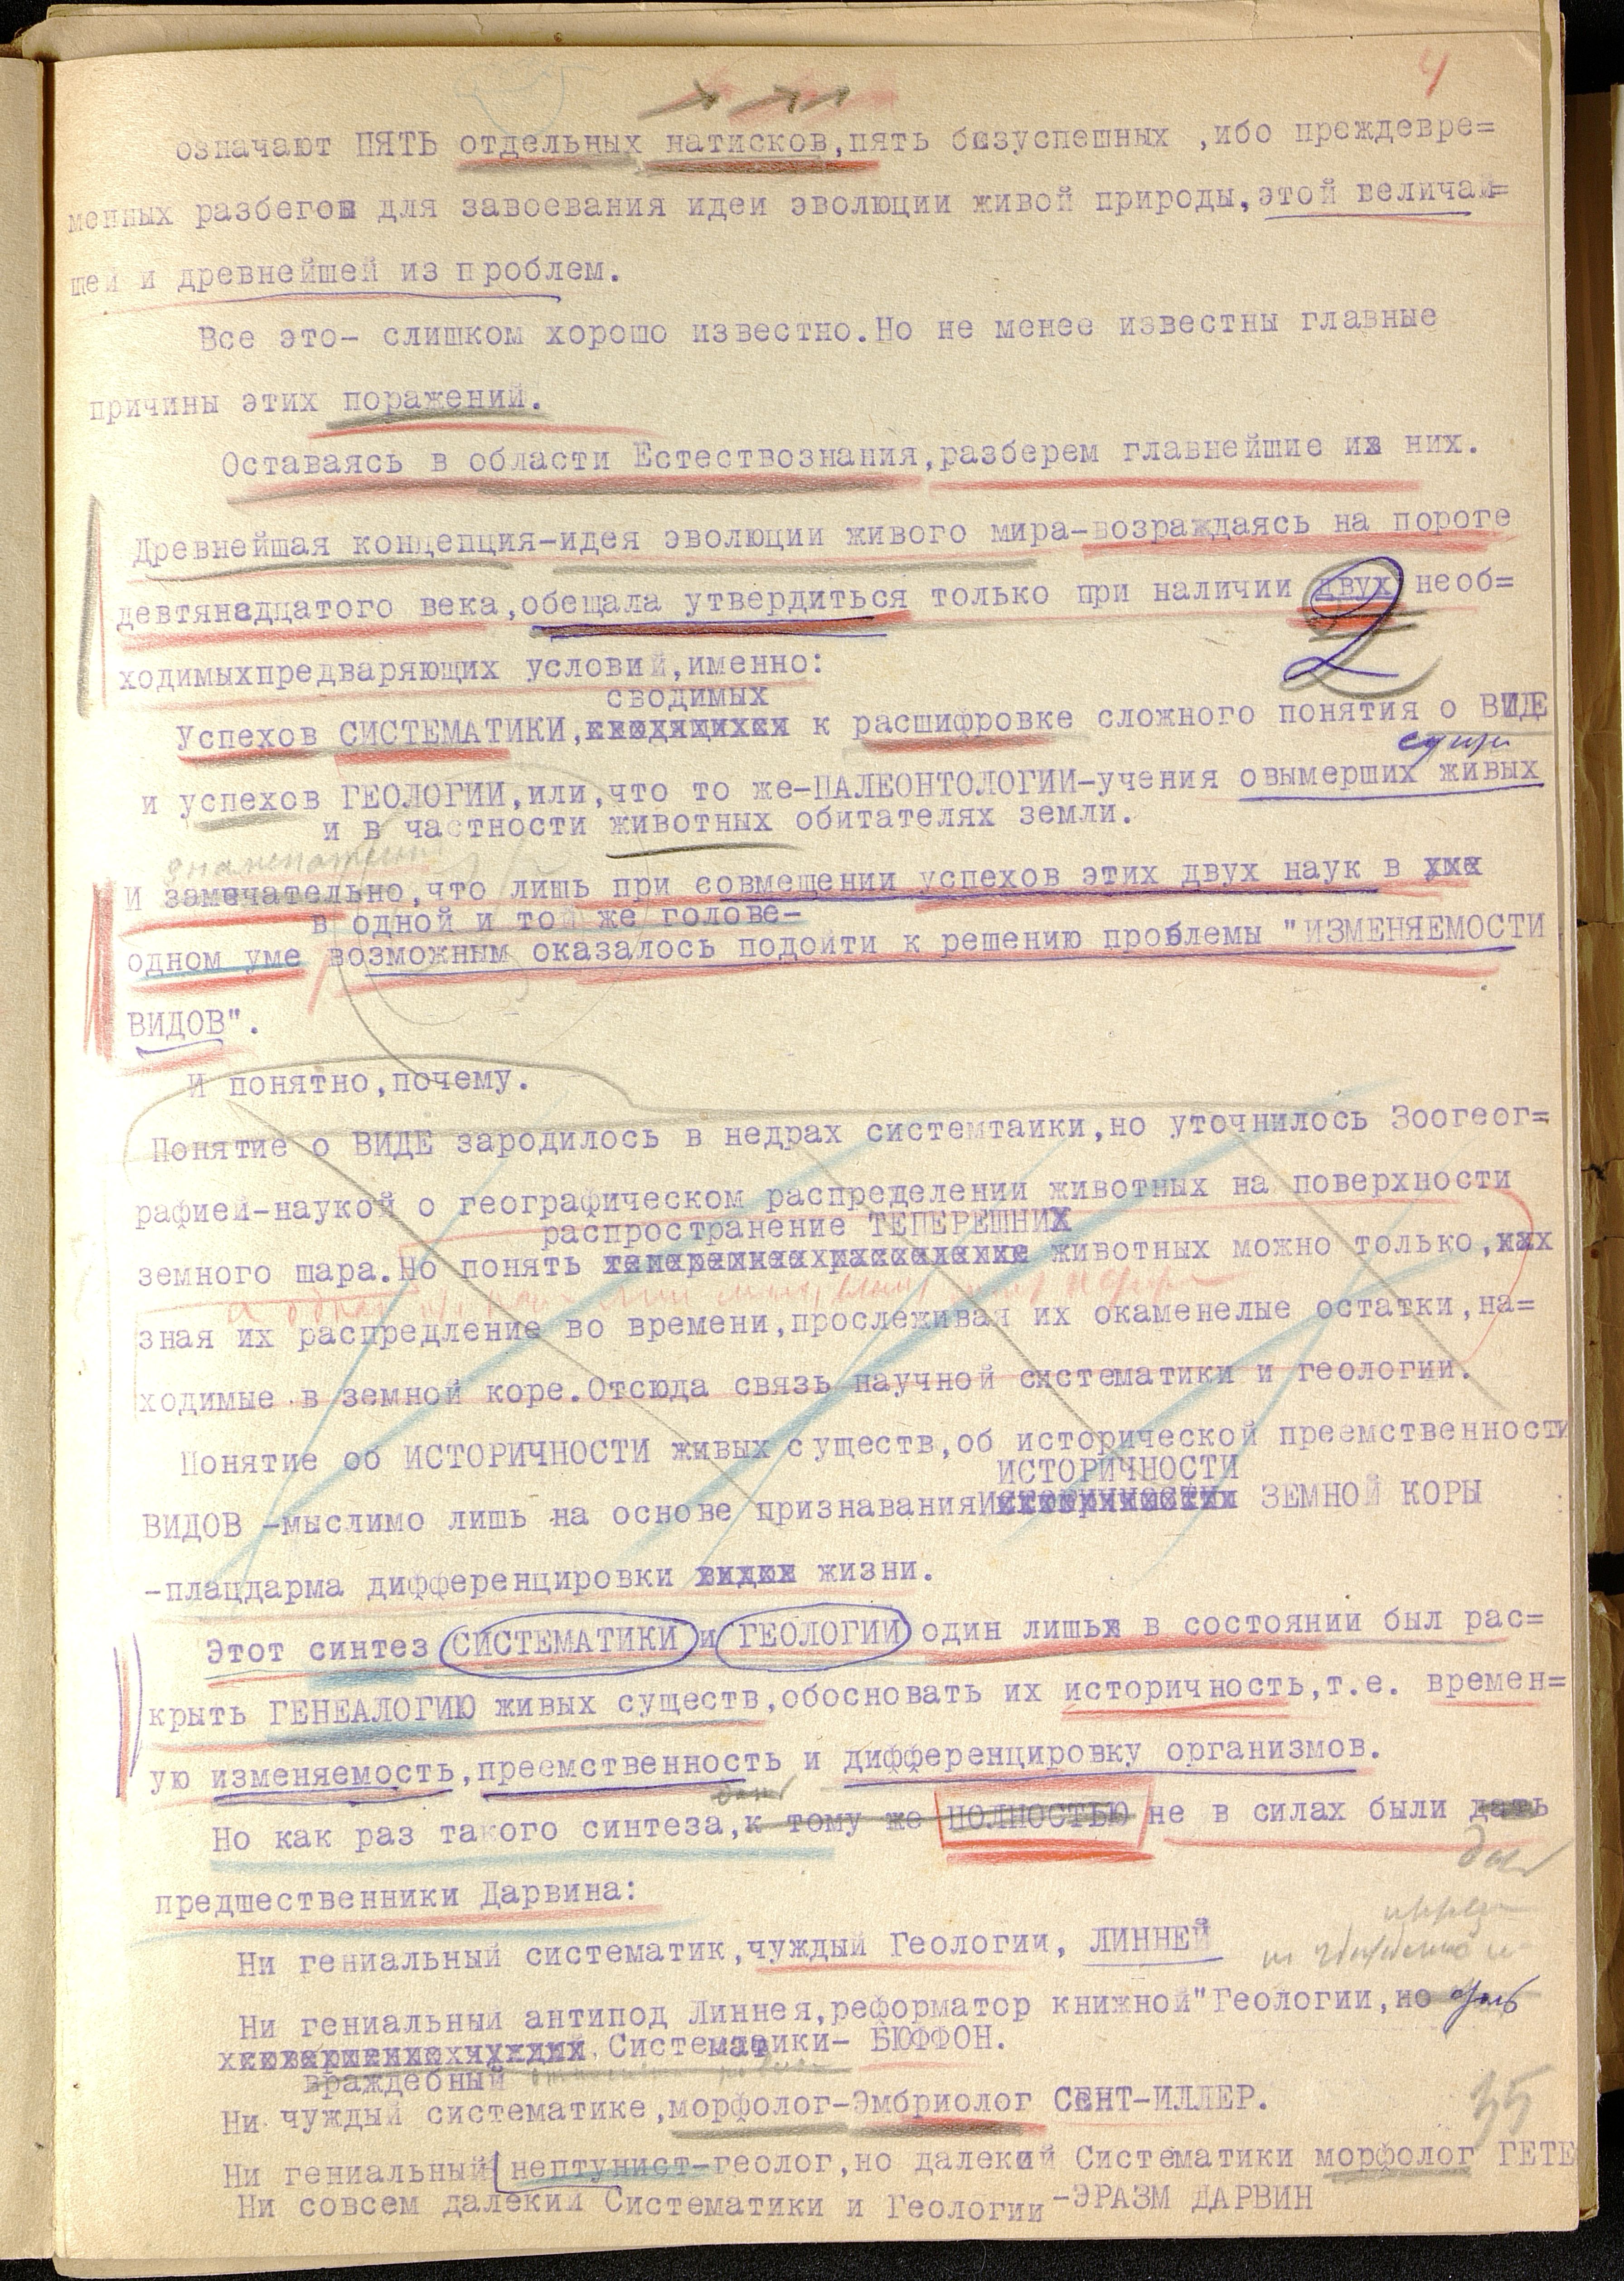 4
означают ПЯТЬ отдельных натисков,пять безуспешных ,ибо преждевре=
менных разбегов для завоевания идеи эволюции живой природы,этой величай=
шей и древнейшей из проблем.
Все это- слишком хорошо известно.Но не менее известны главные
причины этих поражений.
Оставаясь в области Естествознания,разберем главнейшие из них.
Древнейшая концепция-идея эволюции живого мира-возраждаясь на пороге
девтянадцатого века,обещала утвердиться только при наличии двух необ=
2
ходимыхпредваряющих условий,именно:
сводимых
Успехов СИСТЕМАТИКИ, к расшифровке сложного понятия о ВИДЕ
и успехов ГЕОЛОГИИ,или,что то же-ПАЛЕОНТОЛОГИИ-учения овымерших живых
и в частности животных обитателях земли.
И замечательно,что лишь при совмещении успехов этих двух наук в
в одной и той же голове-
одном уме возможным оказалось подойти к решению проблемы "ИЗМЕНЯЕМОСТИ
ВИДОВ".
И понятно,почему.
Понятие о ВИДЕ зародилось в недрах системтаики,но уточнилось Зоогеог=
рафией-наукой о географическом распределении животных на поверхности
распространение ТЕПЕРЕШНИХ
земного шара.Но понять животных можно только,
зная их распредление во времени,прослеживая их окаменелые остатки,на=
ходимые в земной коре.Отсюда связь научной систематики и геологии.
Понятие об ИСТОРИЧНОСТИ живых существ,об исторической преемственности
ИСТОРИЧНОСТИ
ВИДОВ -мыслимо лишь на основе признавания ЗЕМНОЙ КОРЫ
-плацдарма дифференцировки жизни.
Этот синтез СИСТЕМАТИКИ и ГЕОЛОГИИ один лишь в состоянии был рас=
крыть ГЕНЕАЛОГИЮ живых существ,обосновать их историчность,т.е. времен=
ую изменяемость,преемственность и дифференцировку организмов.
Но как раз такого синтеза,к тому же ПОЛНОСТЬЮ не в силах были дать
предшественники Дарвина:
Ни гениальный систематик,чуждый Геологии, ЛИННЕЙ
Ни гениальный антипод Линнея,реформатор книжной"Геологии,но
Систематики- БЮФФОН.
враждебный
Ни чуждый систематике,морфолог-Эмбриолог СЕНТ-ИЛЛЕР.
35
Ни гениальный нептунист-геолог,но далекий Систематики морфолог ГЕТЕ
Ни совсем далекий Систематики и Геологии -ЭРАЗМ ДАРВИН